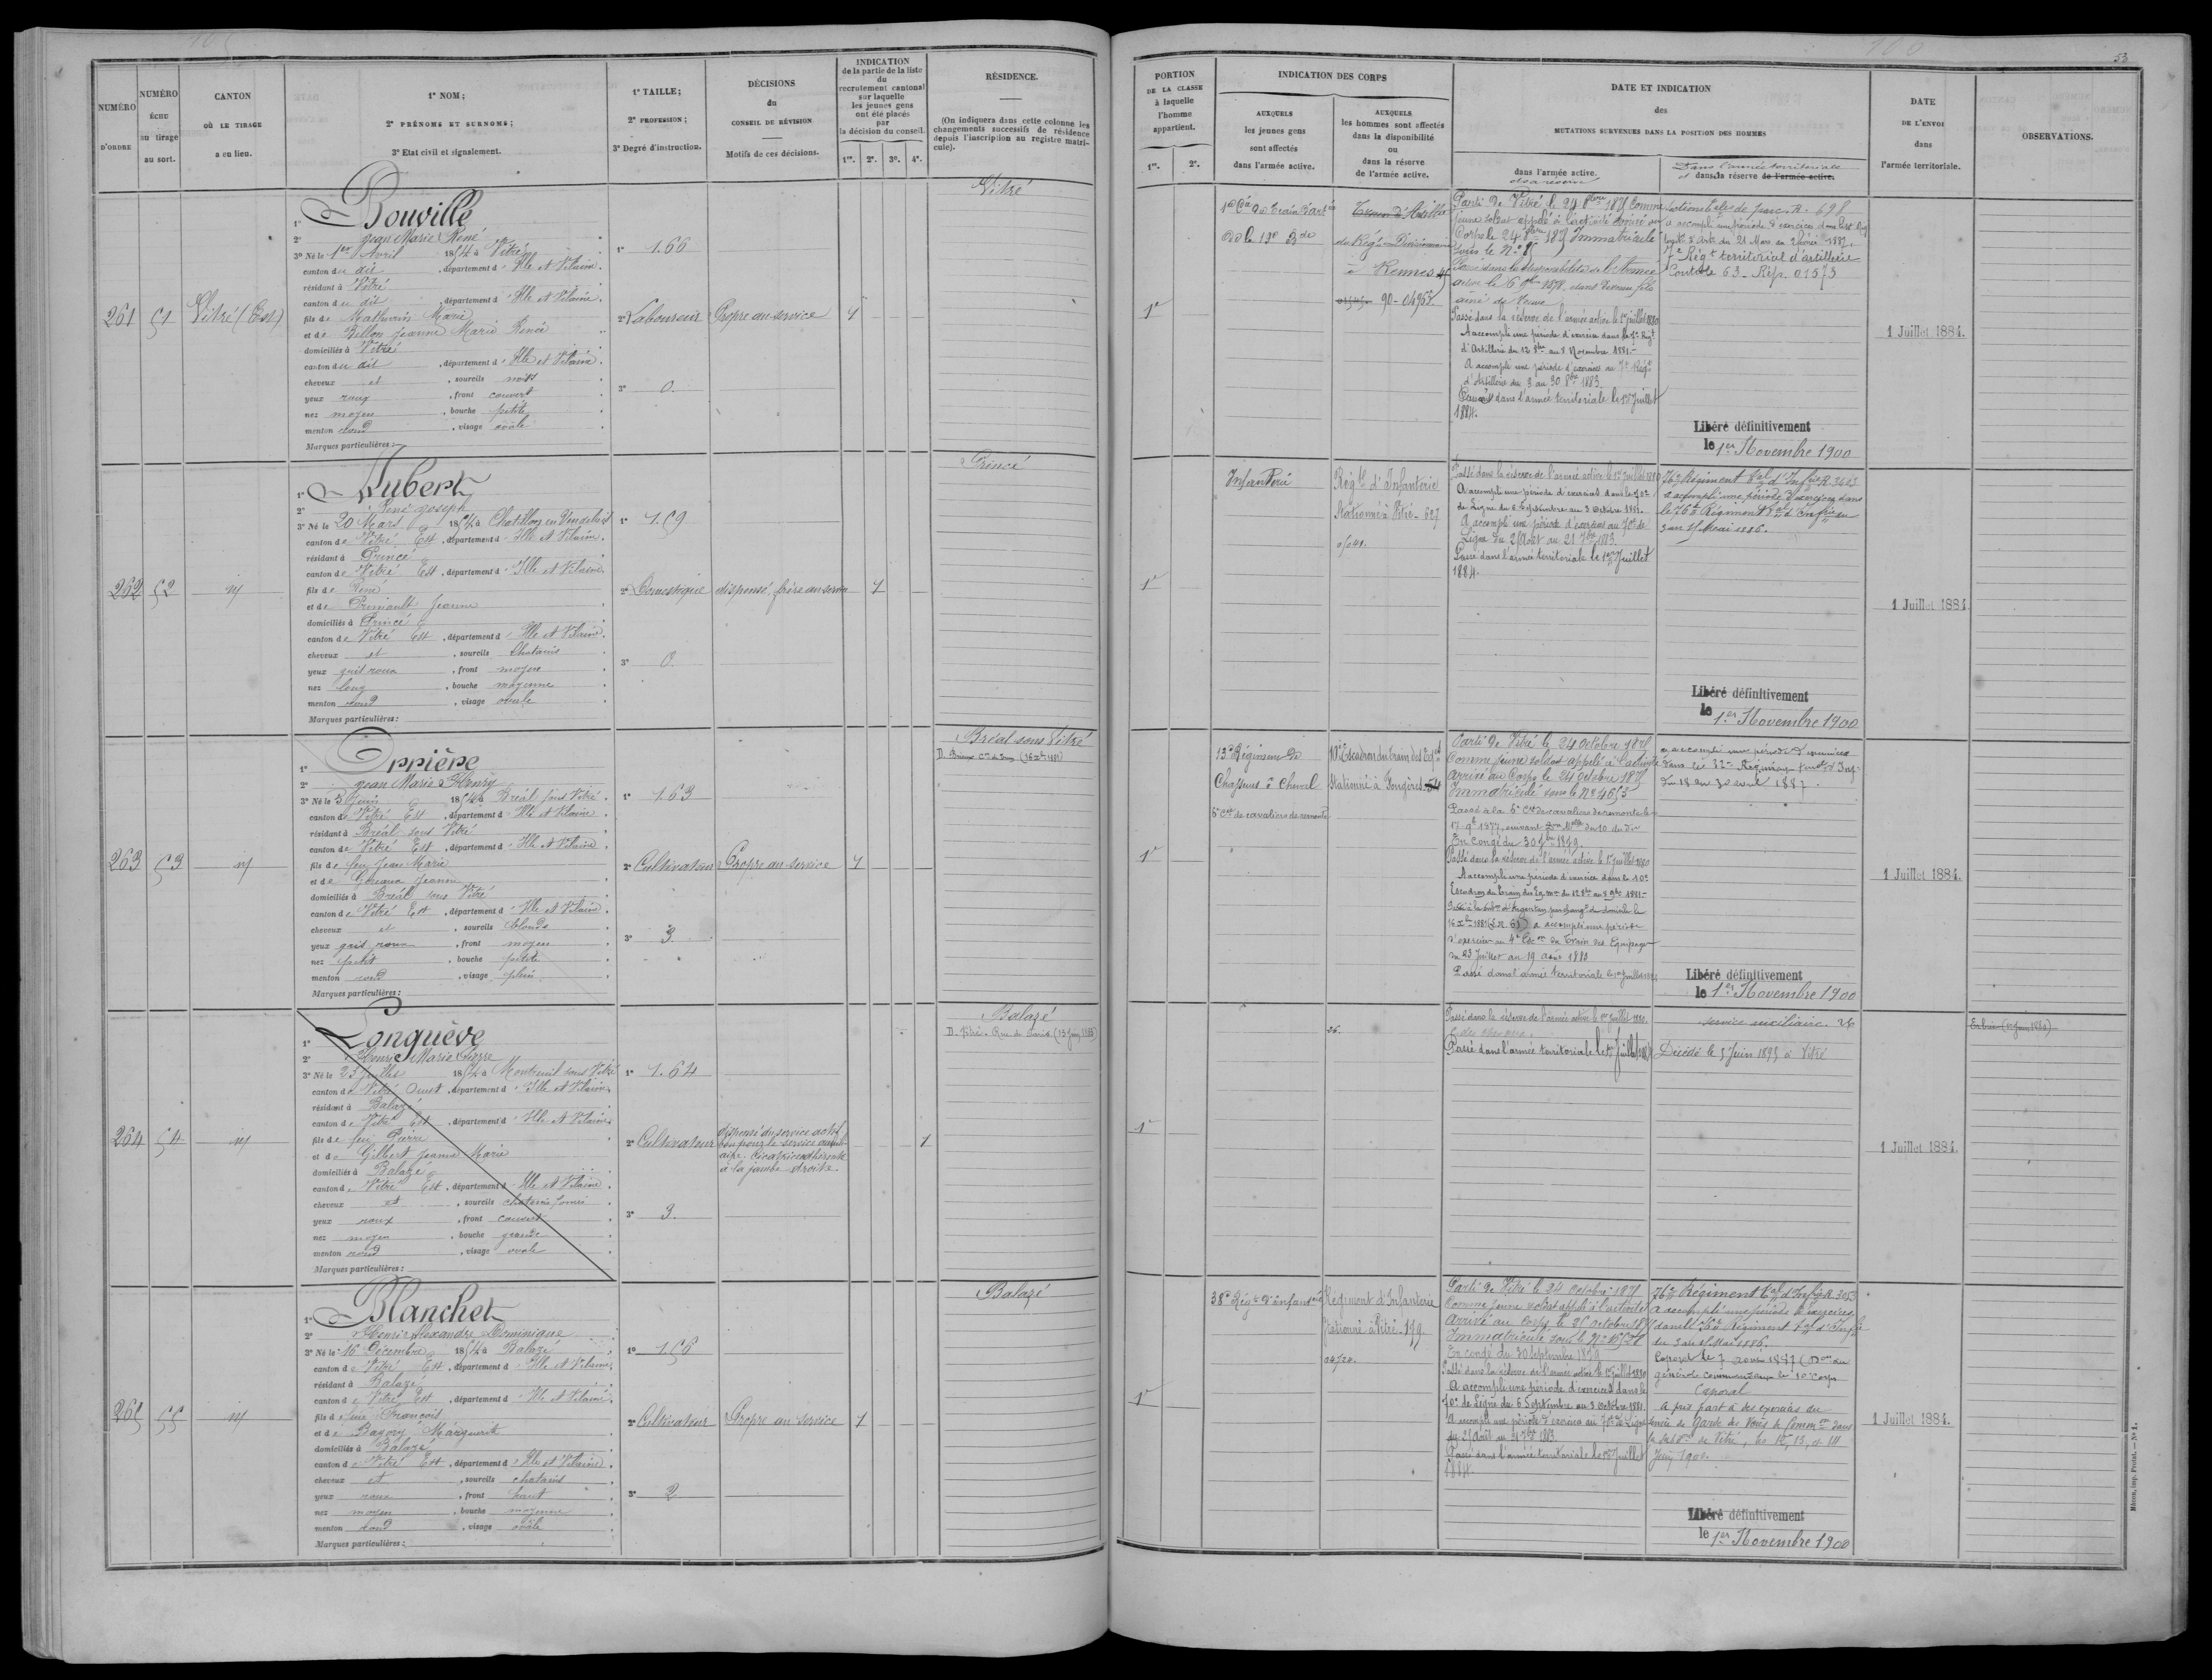 53
NUMÉRO D'ORDRE
NUMÉRO échu au tirage au sort.
CANTON OÙ LE TIRAGE a eu lieu.
1º NOM;
2º PRÉNOMS ET SURNOMS;
3º Etat civil et signalement.
1º TAILLE;
2º PROFESSION;
3º Degré d'instruction.
DÉCISIONS du CONSEIL DE RÉVISION
Motifs de ces décisions.
INDICATION de la partie de la liste du recrutement cantonal sur laquelle les jeunes gens ont été placés par la décision du conseil.
1re. 2e. 3e. 4e.
RÉSIDENCE.
(On indiquera dans cette colonne les changements successifs de résidence depuis l'inscription au registre matricule).
PORTION DE LA CLASSE à laquelle l'homme appartient.
1re. 2e.
INDICATION DES CORPS
AUXQUELS les jeunes gens sont affectés dans l'armée active.
AUXQUELS les hommes sont affectés dans la disponibilité ou dans la réserve de l'armée active.
DATE ET INDICATION des MUTATIONS SURVENUES DANS LA POSITION DES HOMMES
dans l'armée active.
Dans l'armée territoriale
et dans la réserve de l'armée active.
DATE DE L'ENVOI dans l'armée territoriale.
OBSERVATIONS.
261 51 Vitré (Est)
1º Bouville
2º Jean Marie René
3º Né le 1er Avril 1854 à Vitré
canton du dit, département d'Ille et Vilaine.
résidant à Vitré
canton du dit, département d'Ille et Vilaine.
fils de Mathurin Marie
et de Bellon Jeanne Marie Renée
domiciliés à Vitré
canton du dit, département d'Ille et Vilaine.
cheveux et, sourcils noirs
yeux roux, front couvert
nez moyen, bouche petite
menton rond, visage ovale
Marques particulières:
1º 1.66
2º Laboureur
3º 0.
Propre au service
1
Vitré
1e
à Rennes
90-
Parti de Vitré le 24 8bre 1875 comme
jeune soldat appelé à l'activité arrivé au
Corps le 24 8bre 1875 Immatriculé
aîné de Veuve
Passé dans la réserve de l'armée active le 1er juillet 1880
A accompli une période d'exercice dans le 7e Rgt
d'Artillerie du 12 8bre au 8 Novembre 1881.
A accompli une période d'exercices au 7e Régt
d'Artillerie du 3 au 30 8bre 1883.
Passé dans l'armée territoriale le 1er Juillet
1884.
7e Régt territorial d'artillerie
1 Juillet 1884.
Libéré définitivement
le 1er Novembre 1900
262 52 id
1º Hubert
2º René Joseph
3º Né le 20 Mars 1854 à Chatillon en Vendelais
canton de Vitré Est, département d'Ille et Vilaine.
résidant à Princé
canton de Vitré Est, département d'Ille et Vilaine
fils de René
et de Jeanne
domiciliés à Princé
canton de Vitré Est, département d'Ille et Vilaine.
cheveux et, sourcils Chatains
yeux gris roux, front moyen
nez long, bouche moyenne
menton rond, visage ovale
Marques particulières:
1º 1.59
2º Domestique
3º 0.
dispensé, frère au service
1
Princé
1e
Infanterie
Régt d'Infanterie
Stationné à Vitré - 627
Passé dans la réserve de l'armée active le 1er juillet 1880
A accompli une période d'exercices dans le 70e
de Ligne du 6 Septembre au 3 Octobre 1881.
A accompli une période d'exercices au 70e de
Ligne du 25 Août au 21 7bre 1883.
Passé dans l'armée territoriale le 1er Juillet
1884.
76e Régiment Tal d'Infrie R. 3603
a accompli une période d'exercices dans
le 76e Régiment Tal d'Infrie du
3 au 15 Mai 1886.
1 Juillet 1884.
Libéré définitivement
le 1er Novembre 1900
263 53 id
1º Orrière
2º Jean Marie Henry
3º Né le 3 Juin 1854 à Bréal sous Vitré
canton de Vitré Est, département d'Ille et Vilaine
résidant à Bréal sous Vitré
canton de Vitré Est, département d'Ille et Vilaine
fils de feu Jean Marie
et de Jeanne
domiciliés à Bréal sous Vitré
canton de Vitré Est, département d'Ille et Vilaine
cheveux et, sourcils blonds
yeux gris roux, front moyen
nez petit, bouche petite
menton rond, visage plein
Marques particulières:
1º 1.63
2º Cultivateur
3º 3.
Propre au service
1
Bréal sous Vitré
1e
13e Régiment de
Chasseurs à Cheval
6e Cie de cavaliers de remonte
10e Escadron du train des Eq.
Stationné à Fougères
Parti de Vitré le 24 Octobre 1875
Comme jeune soldat appelé à l'activité
arrivé au Corps le 24 Octobre 1875
Immatriculé sous le Nº 4653
Passé à la 6e Cie de cavaliers de remonte le
En Congé du 30 1879.
Passé dans la réserve de l'armée active le 1er juillet 1880
A accompli une période d'exercice dans le 10e
Escadron du train des Eq. du 12 8bre au 8 9bre 1881.
d'exercices au 4e Esc. du Train des Equipages
du 23 Juillet au 19 août 1883
Passé dans l'armée territoriale le 1er juillet 1884
a accompli une période d'exercices
dans le 32e Régiment d'Inf
du 18 au 30 avril 1887.
1 Juillet 1884.
Libéré définitivement
le 1er Novembre 1900
264 54 id
1º Longuève
2º Henri Marie Pierre
3º Né le 23 Juillet 1854 à Montreuil sous Vitré
canton de Vitré Ouest, département d'Ille et Vilaine
résidant à Balazé
canton de Vitré Est, département d'Ille et Vilaine
fils de feu Pierre
et de Gilbert Jeanne Marie
domiciliés à Balazé
canton de Vitré Est, département d'Ille et Vilaine
cheveux et, sourcils chatains foncés
yeux roux, front couvert
nez moyen, bouche grande
menton rond, visage ovale
Marques particulières:
1º 1.64
2º Cultivateur
3º 3.
dispensé du service actif
bon pour le service auxili-
aire. Cicatrice adhérente
à la jambe droite.
1
Balazé
D. Vitré. Rue de Paris (13 Juin 1883)
1e
26.
Passé dans la réserve de l'armée active le 1er juillet 1880.
Passé dans l'armée territoriale le 1er Juillet 1884
service auxiliaire. 26
Décédé le 5 Juin 1895 à Vitré
1 Juillet 1884.
265 55 id
1º Blanchet
2º Henri Alexandre Dominique
3º Né le 16 Décembre 1854 à Balazé
canton de Vitré Est, département d'Ille et Vilaine
résidant à Balazé
canton de Vitré Est, département d'Ille et Vilaine
fils de feu François
et de Bagory Marguerite
domiciliés à Balazé
canton de Vitré Est, département d'Ille et Vilaine
cheveux et, sourcils chatains
yeux roux, front haut
nez moyen, bouche moyenne
menton rond, visage ovale
Marques particulières:
1º 1.56
2º Cultivateur
3º 2
Propre au service
1
Balazé
1e
38e Régt d'infanterie
Régiment d'Infanterie
Stationné à Vitré. 199.
Parti de Vitré le 24 Octobre 1875
Comme jeune soldat appelé à l'activité
Arrivé au Corps le 26 Octobre 1875
En congé du 30 Septembre 1879
Passé dans la réserve de l'armée active le 1er juillet 1880
A accompli une période d'exercices dans le
70e de Ligne du 6 Septembre au 3 octobre 1881.
A accompli une période d'exercice au 70e de Ligne
du 25 août au 21 7bre 1883.
Passé dans l'armée territoriale le 1er Juillet
1884.
76e Régiment Tal d'Infrie R. 3053
a accompli une période d'exercices
dans le 76e Régiment Tal d'Infie
du 3 au 15 Mai 1886.
Caporal le 7 1887 (Don du
général commandant le 10e Corps
Caporal
a pris part à des exercices du
service de Garde des Voies de Comm.on dans
la subd.on de Vitré, les 12, 13, et 14
Juin 1900.
1 Juillet 1884.
Libéré définitivement
le 1er Novembre 1900
Mâcon, imp. Protat. — Nº 1.